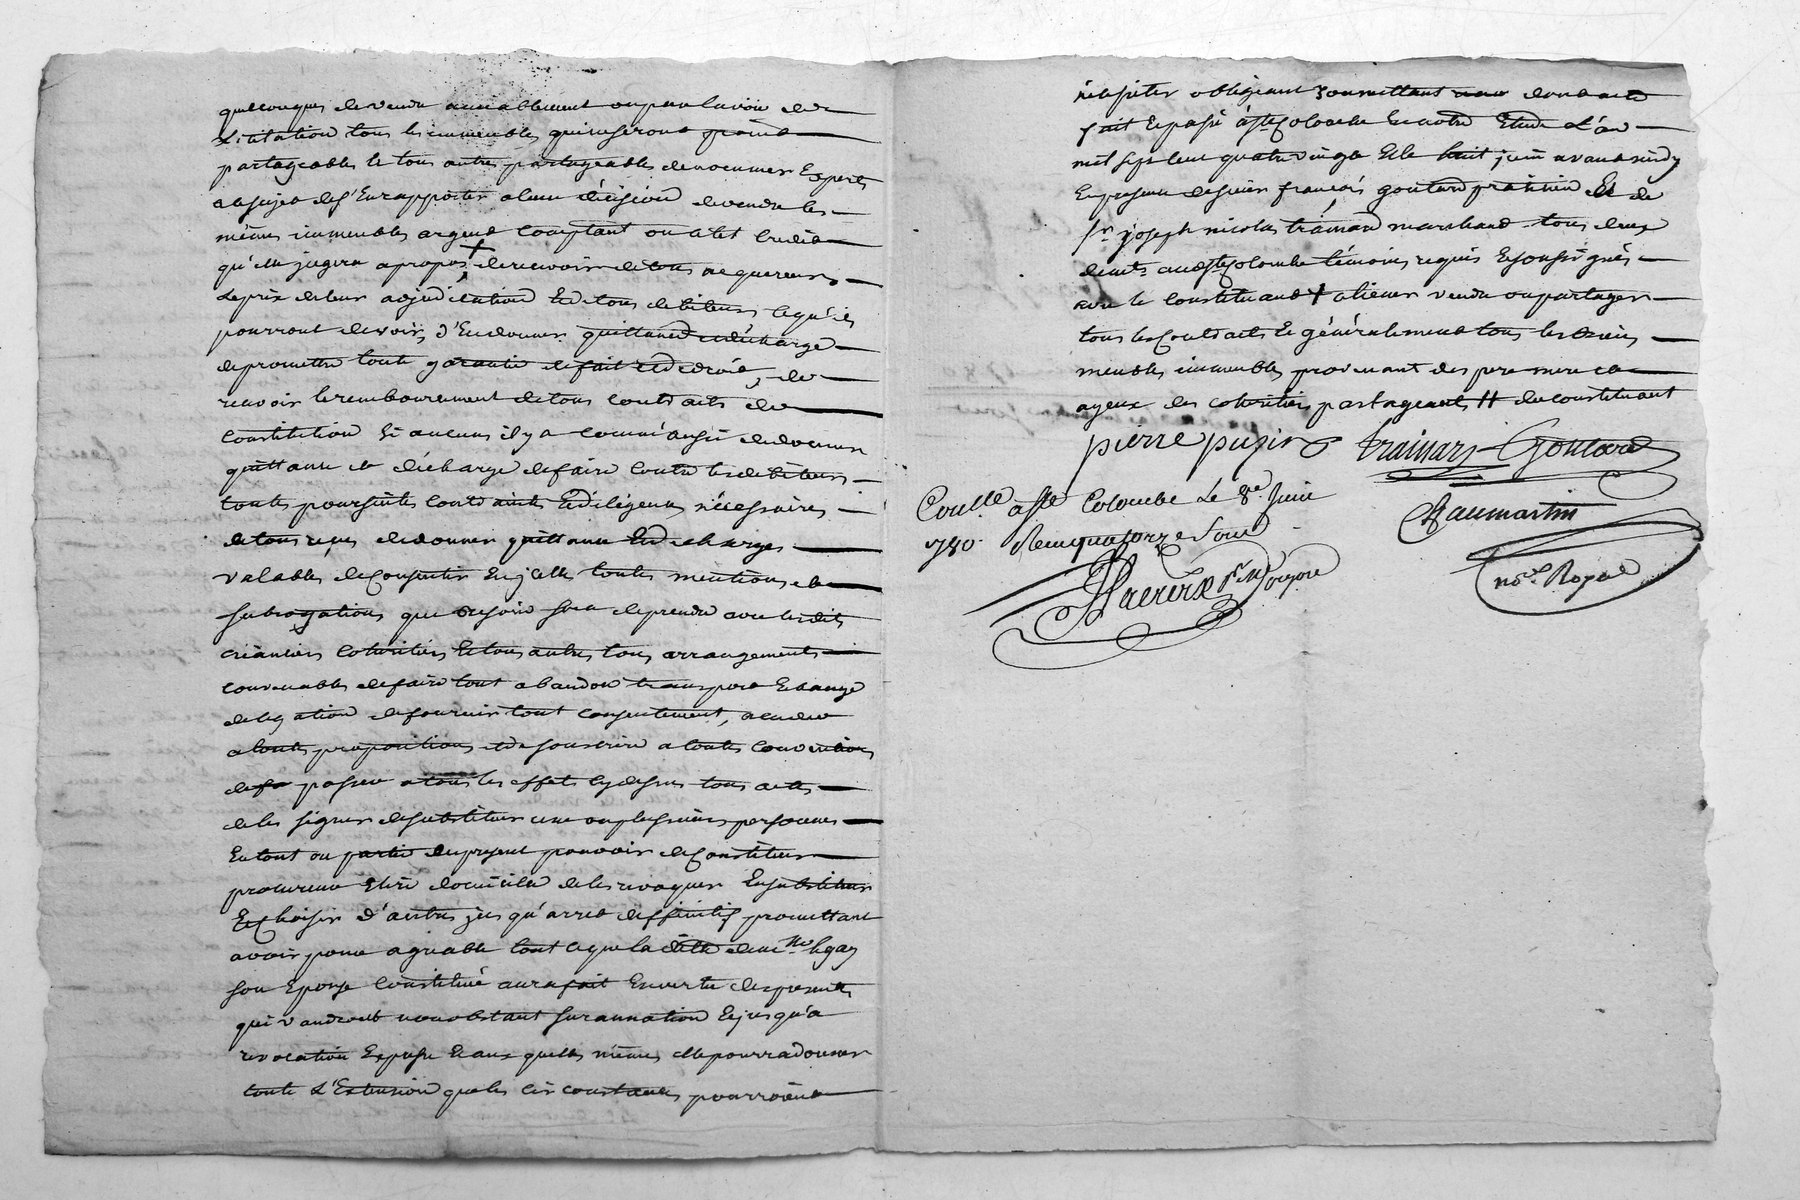 quelconques de vendre amiablement ou par la voie de
Licitation tous les immeubles qui ne seront point
partageables et tous autres partageables de nommer Experts
a ce sujet de s'En rapporter a leur décision de vendre les
mêmes immeubles argent comptant ou a tel credit
qu'elle jugera apropos + de recevoir de tous acquereurs
Le prix de leur adjudication Et de tous debiteurs ce qu'ils
pourront devoir, d'En donner quittance et décharge
de promettre toute garantie de fait et de droit, de
recevoir le remboursement de tous contracts de
Constitution Si aucuns il y a comme aussi de donner
quittance et décharge de faire contre les debiteurs
toutes poursuittes contraintes Et diligences nécessaires
de tous reçus de donner quittance Et decharges
valables de Consentir En icelle toutes mentions et
subrogations que besoin sera de prendre avec les dits
créanciers cohéritiers Et tous autres tous arrangements
convenables de faire tout abandon transport Echange
delegation de fournir tout consentement, acceder
a toutes propositions et de souscrire a toutes conventions
de passer a tous les effets cy dessus tous actes
de les signer de substituer une ou plusieurs personnes
En tout ou partie du present pouvoir de Constituer
procureur Elire domicile de les revoquer En substituer
Et Choisir d'autres jusqu'arret deffinitif promettant
avoir pour agreable tout ce que la ditte
son Epouse constituée aura fait En vertu des presentes
qui vaudront nonobstant surannation Et jusqu'a
revocation Expresse Et aux quelles mêmes elle pourra donner
toute L'Extension que les circonstances pourroient
nécessiter obligeant soumettant dont acte
fait Et passé à Ste Colombe En notre Etude L'an
mil sept cent quatre vingt Et le huit juin avant midy
En presence de sieur françois goutard praticien Et de
Sr. joseph nicolas trainard marchand tous deux
demts. audt Ste Colombe témoins requis Et soussignés
avec le constituant + aliener vendre ou partager
tous les Contracts Et généralement tous les biens
meubles immeubles provenant des pere mere et
ayeux des cohéritiers partageants H du constituant
pierre pupin trainard Goutard
Conllé. à Ste Colombe Le 8e. Juin
780. Reçu quatorze Sous
not. Royal